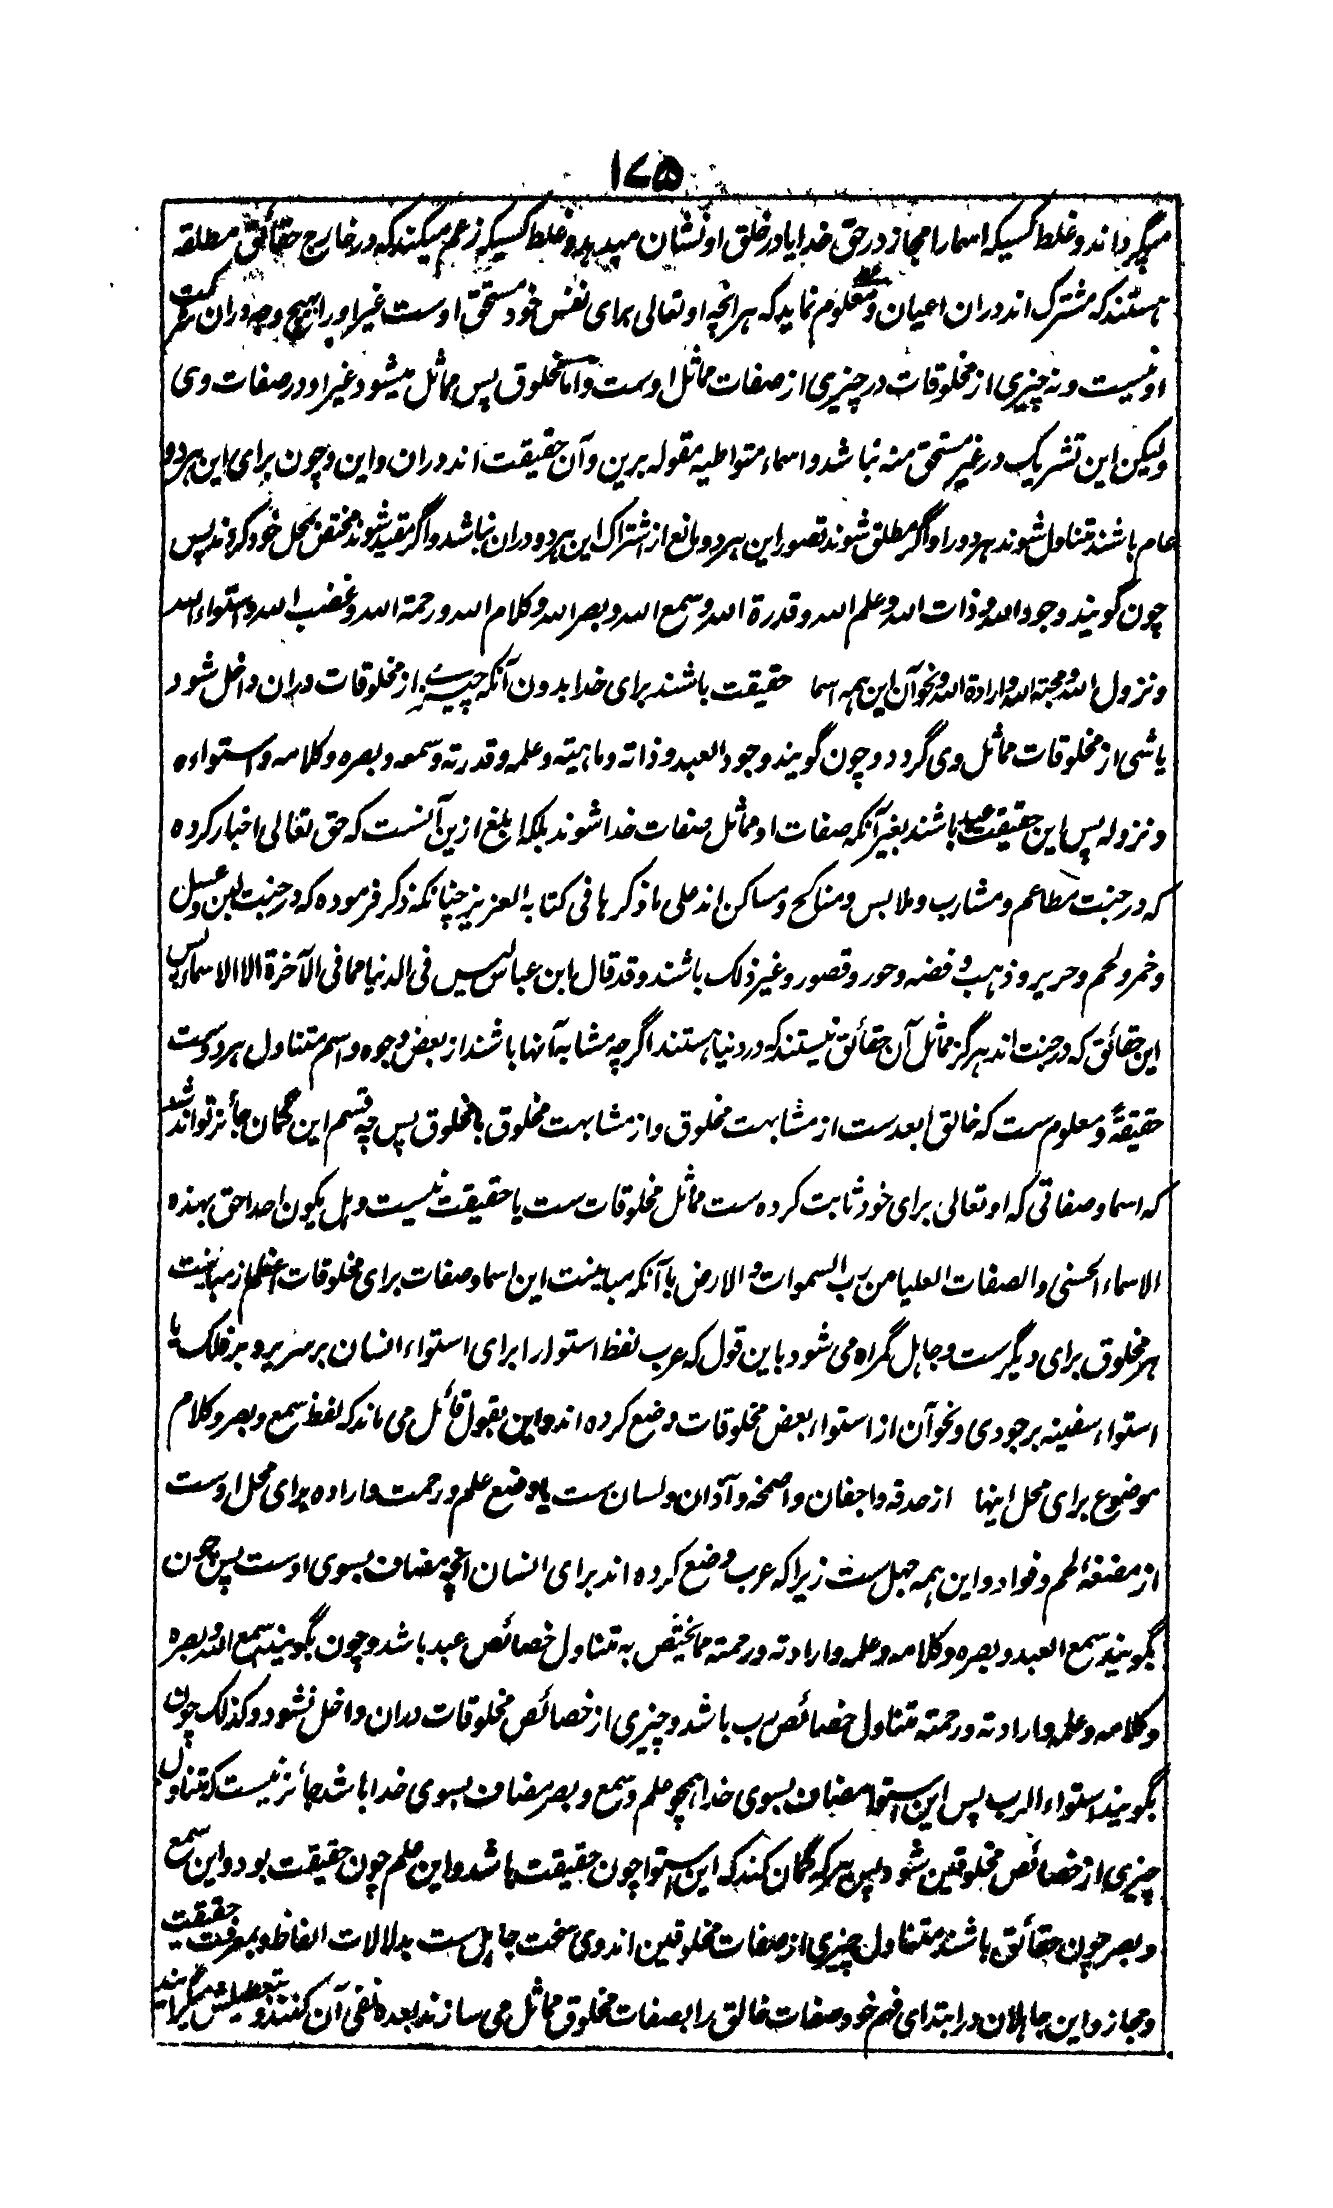 ۱۷۵
میگرداند و غلط کسیکه اسما را مجاز در حق خدا یا در خلق او نشان میدهد و غلط کسیکه زعم میکند که در خارج حقائق مطلقه
هستند که مشترک اند دران اعیان و معلوم نماید که هر انچه او تعالی برای نفس خود مستحق اوست غیر او را هیچ وجه دران شرکت
او نیست و نه چیزی از مخلوقات در چیزی از صفات مماثل اوست و اما مخلوق پس مماثل میشود غیر او در صفات وی
ولیکن این تشریک در غیر مستحق منه نباشد و اسماء متواطیه مقوله برین و آن حقیقت اند دران و این و چون برای این هردو
عام باشند متناول شوند هردو را و اگر مطلق شوند تصور این هردو مانع از اشتراک این هردو دران نباشد و اگر مقید شوند مختص بمحل خود گردند پس
چون گویند وجود الله و ذات الله و علم الله و قدرة الله و سمع الله و بصر الله و کلام الله و رحمة الله و غضب الله و استواء الله
و نزول الله و محبة الله و ارادة الله و نحو آن این همه اسما حقیقت باشند برای خدا بدون آنکه چیزے از مخلوقات دران داخل شود
یا شی از مخلوقات مماثل وی گردد و چون گویند وجود العبد و ذاته و ماهیته و علمه و قدرته و سمعه و بصره و کلامه و استواءه
و نزوله پس این حقیقت عبد باشند بغیر آنکه صفات او مماثل صفات خدا شوند بلکه ابلغ ازین آنست که حق تعالی اخبار کرده
که در جنت مطاعم و مشارب و ملابس و مناکح و مساکن اند علی ما ذکرها فی کتابه العزیز چنانکه ذکر فرموده که در جنت لبن و عسل
و خمر و لحم و حریر و ذهب و فضه و حور و قصور و غیر ذلک باشند و قد قال ابن عباس لیس فی الدنیا مما فی الآخرة الا الاسماء پس
این حقائق که در جنت اند هرگز مماثل آن حقائق نیستند که در دنیا هستند اگرچه مشابه آنها باشند از بعض وجوه و اسم متناول هردوست
حقیقةً و معلومست که خالق ابعدست از مشابهت مخلوق و از مشابهت مخلوق بمخلوق پس چه قسم این گمان جائز تواند شد
که اسما و صفاتی که او تعالی برای خود ثابت کرده ست مماثل مخلوقات ست یا حقیقت نیست و هل یکون احد احق بهذه
الاسماء الحسنی و الصفات العلیا من رب السموات و الارض با آنکه مباینت این اسما و صفات برای مخلوقات اعظم از مباینت
هر مخلوق برای دیگرست و جاهل گمراه می شود باین قول که عرب لفظ استوا را برای استواء انسان بر سریر و بر فلک یا
استواء سفینه بر جودی و نحو آن از استواء بعض مخلوقات وضع کرده اند و این بقول قائل می ماند که لفظ سمع و بصر و کلام
موضوع برای محل اینها از حدقه و اجفان و اصمخه و آذان و لسان ست یا وضع علم و رحمت و اراده برای محل اوست
از مضغه لحم و فواد و این همه جهل ست زیرا که عرب وضع کرده اند برای انسان انچه مضاف بسوی اوست پس چون
بگویند سمع العبد و بصره و کلامه و علمه و ارادته و رحمته مما یختص به متناول خصائص عبد باشد و چون بگویند سمع الله و بصره
و کلامه و علمه و ارادته و رحمته متناول خصائص رب باشد و چیزی از خصائص مخلوقات دران داخل نشود و کذلک چون
بگویند استواء الرب پس این استوا مضاف بسوی خدا همچو علم و سمع و بصر مضاف بسوی خدا باشد جائز نیست که متناول
چیزی از خصائص مخلوقین شود پس هرکه گمان کند که این استوا چون حقیقت باشد و این علم چون حقیقت بود و این سمع
و بصر چون حقائق باشند متناول چیزی از صفات مخلوقین اند وی سخت جاهل ست بدلالات الفاظ و بمعرفت حقیقت
و مجاز و این جاهلان در ابتدای فهم خود صفات خالق را بصفات مخلوق مماثل می سازند بعده نفی آن کنند و بتعطیلش میگرایند